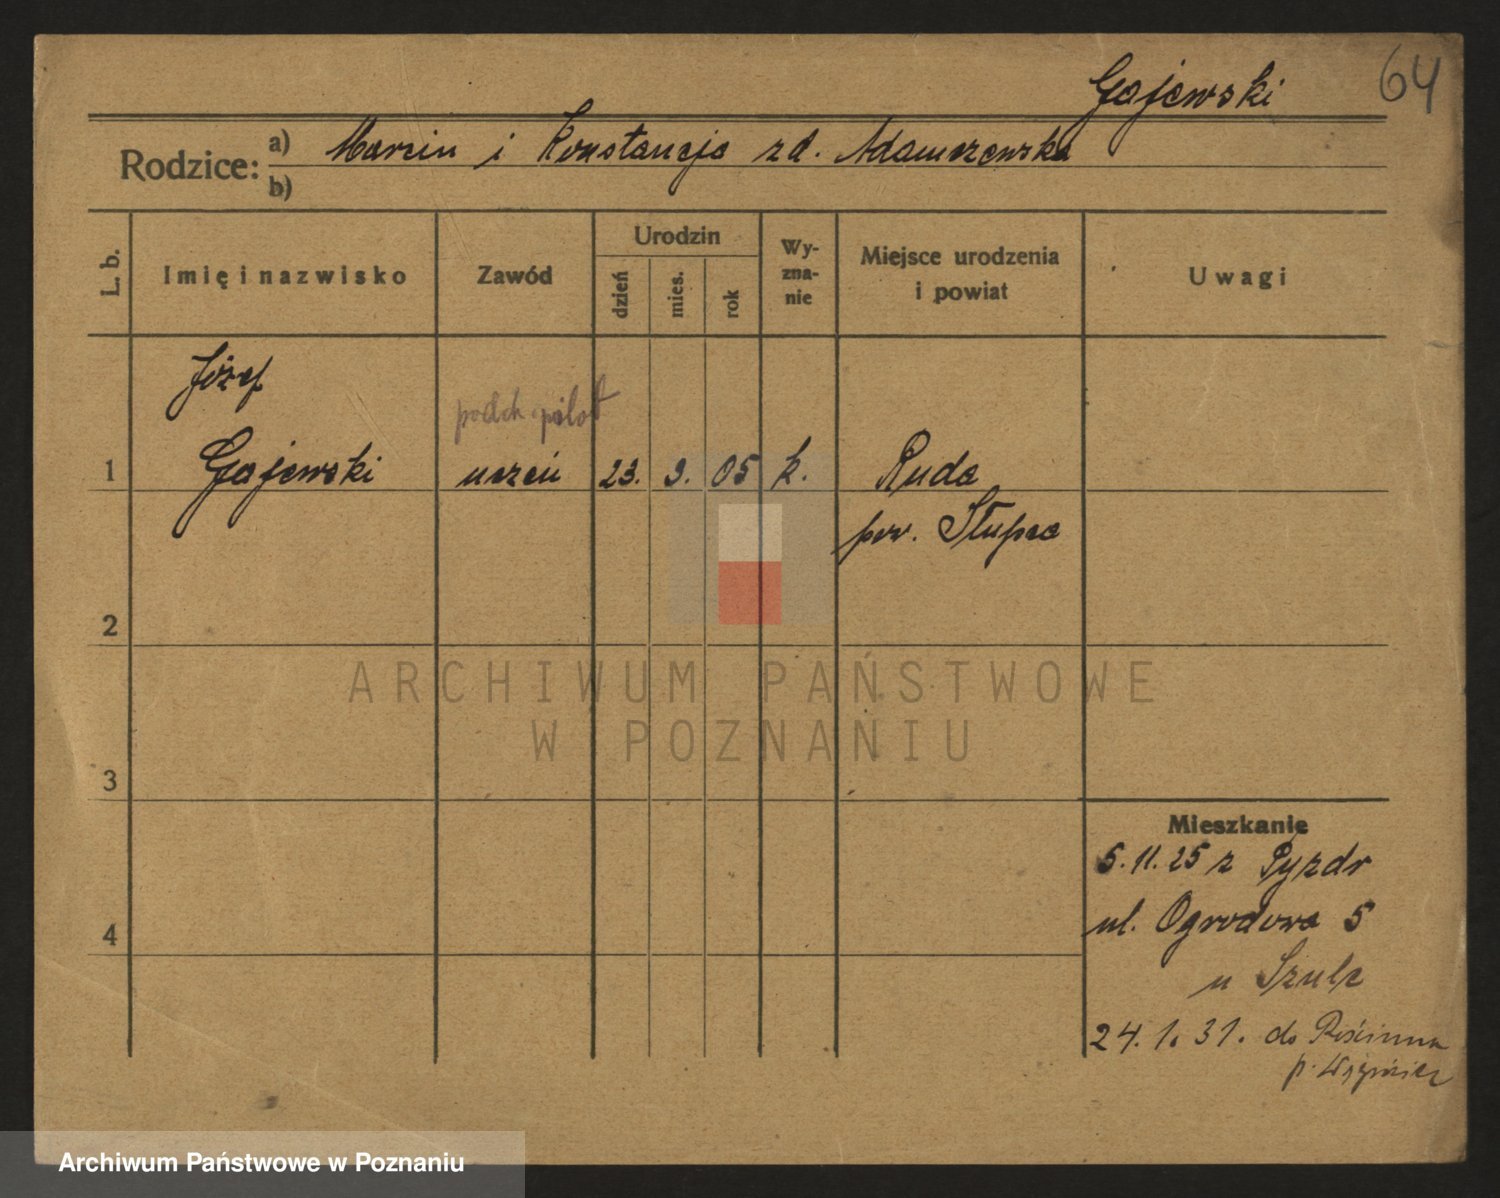 Gajewski
64
Rodzice:
a) Marcin i Konstancja zd. Adamczewska
b)
L. b.
Imię i nazwisko
Zawód
Urodzin
dzień
mies.
rok
Wy-
zna-
nie
Miejsce urodzenia
i powiat
Uwagi
Józef
podch pilot
1 Gajewski uczeń 23. 9. 05 k. Ruda
pow. Słupca
2
3
4
Mieszkanie
5.11.25 z Pyzdr
ul. Ogrodowa 5
u Szulc
24.1.31. do
p.
ARCHIWUM PAŃSTWOWE
W POZNANIU
Archiwum Państwowe w Poznaniu